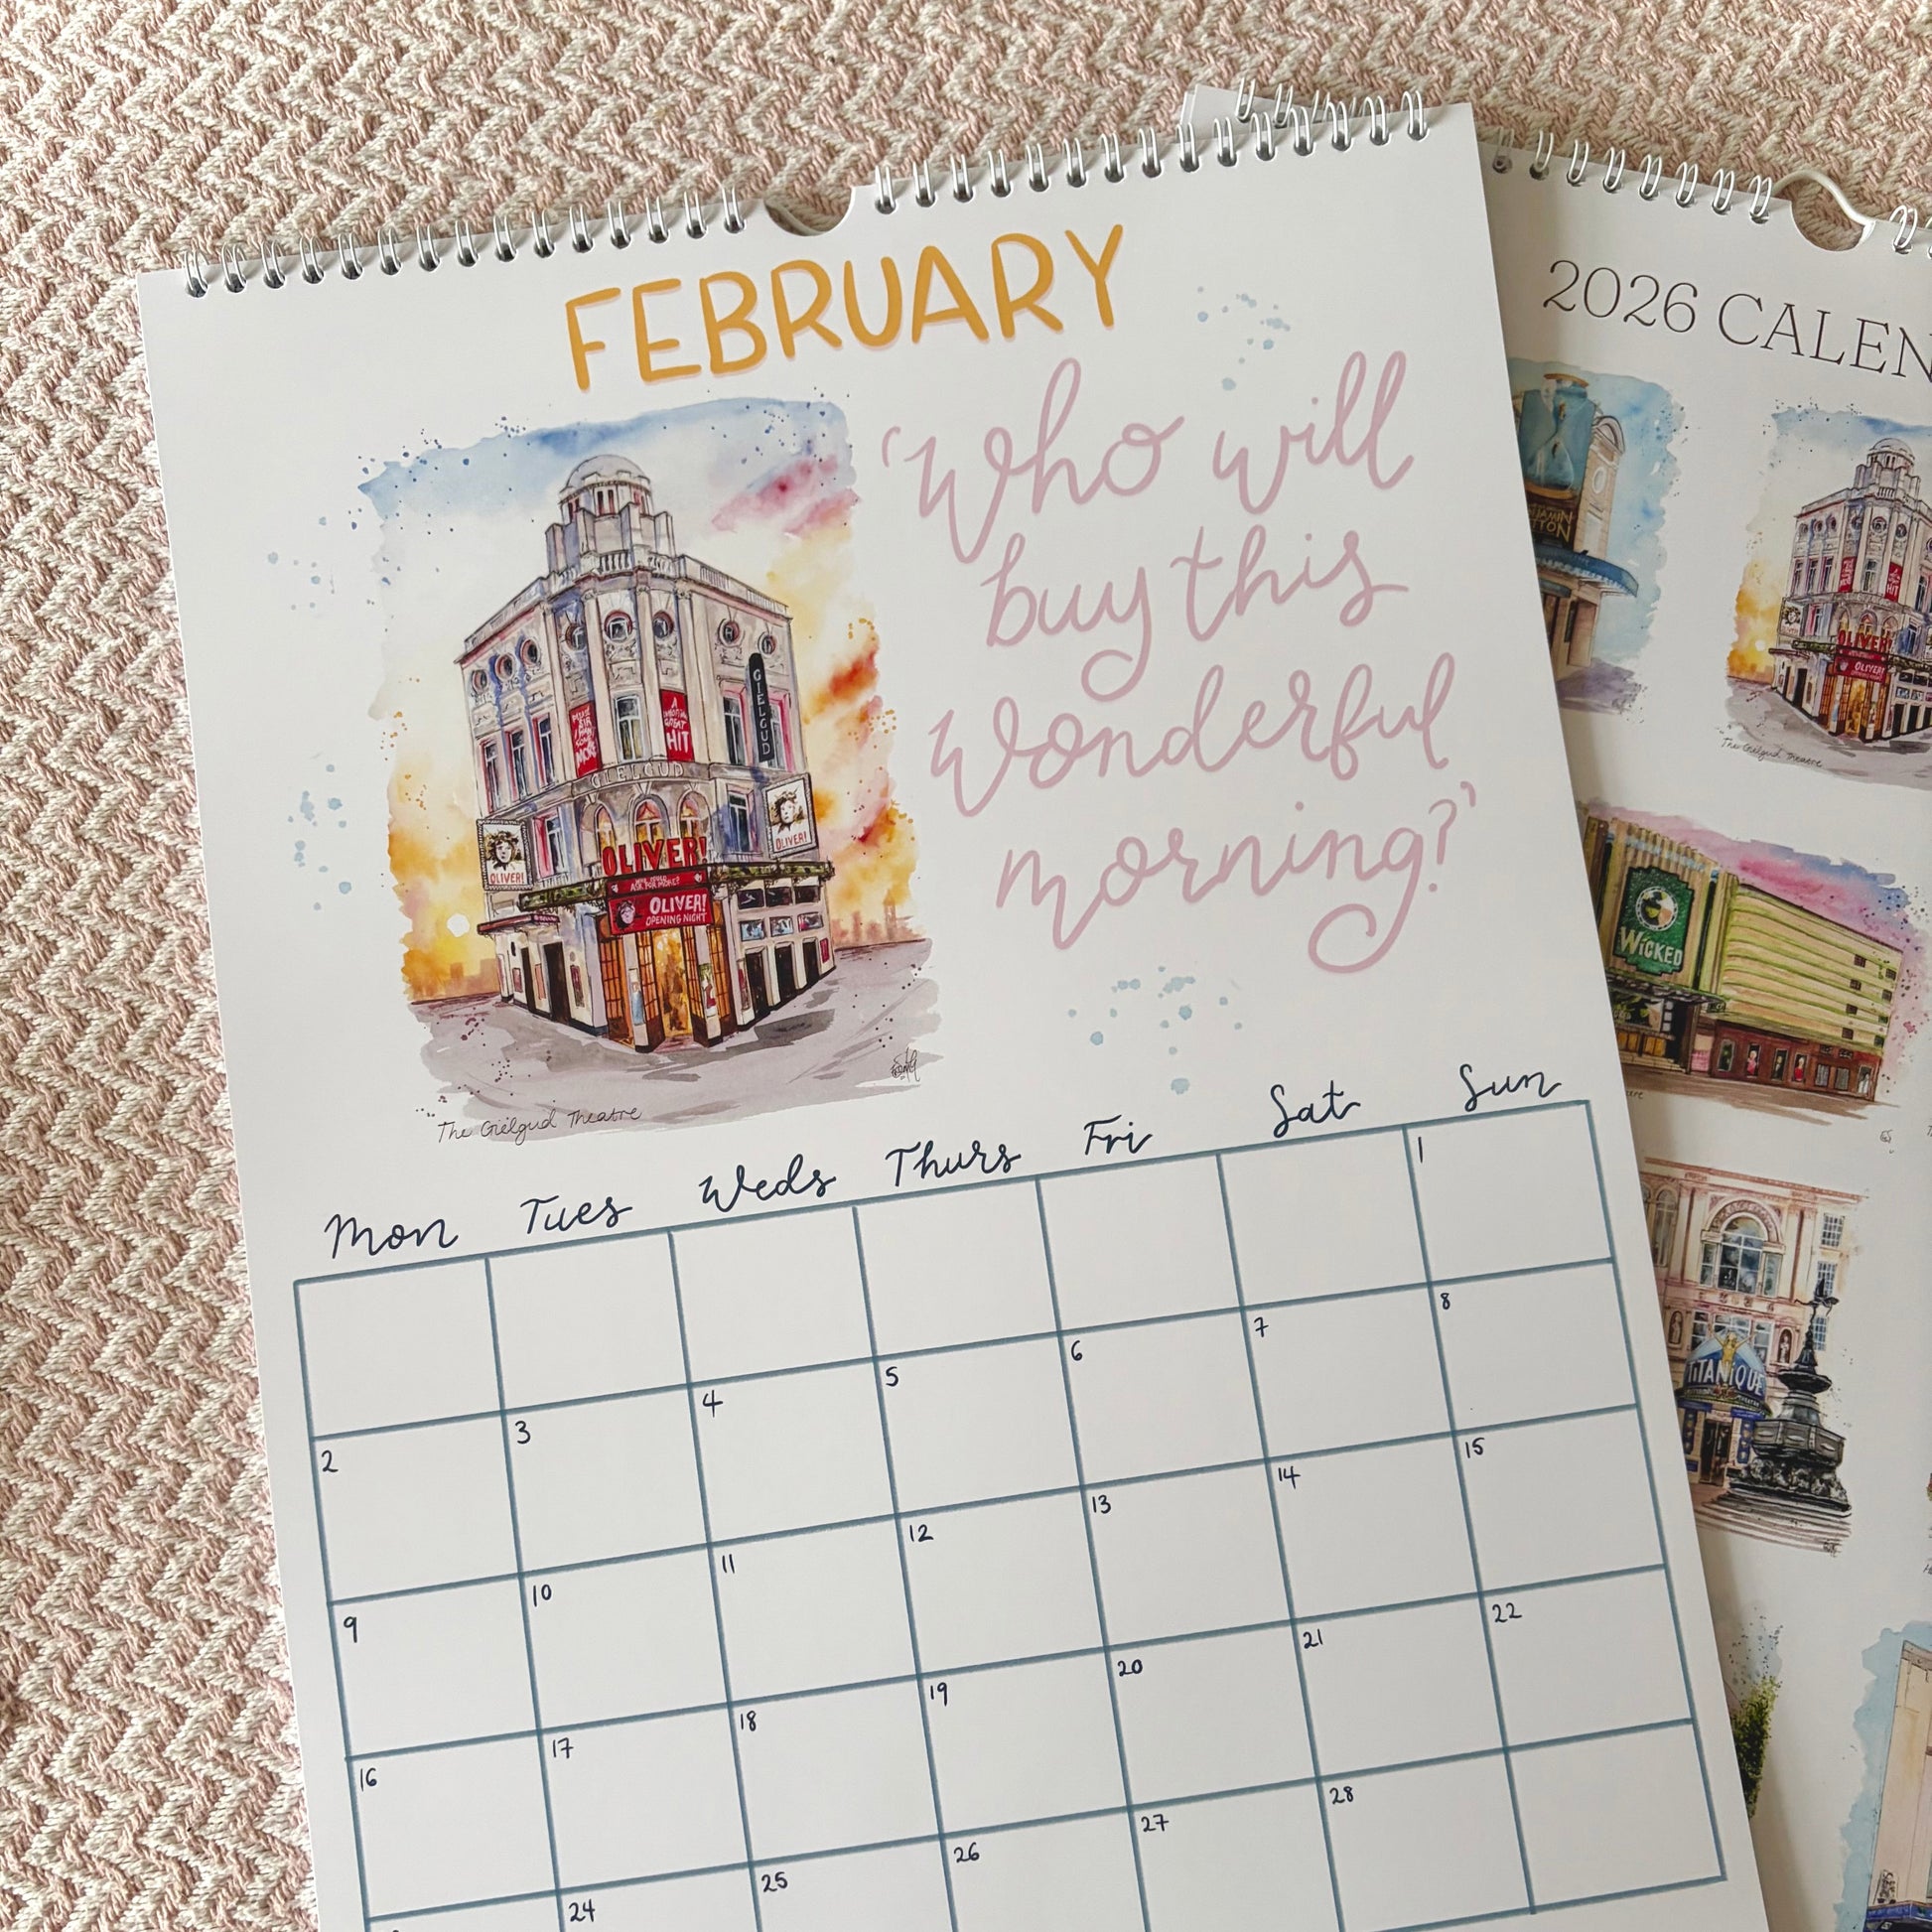 FEBRUARY
'Who will
buy this
wonderful
morning?'
GIELGUD
A
GREAT
HIT
MORE
GIELGUD
OLIVER!
OLIVER!
OLIVER!
ASK FOR MORE?
OLIVER!
OPENING NIGHT
The Gielgud Theatre
Mon Tues Weds Thurs Fri Sat Sun
1
2 3 4 5 6 7 8
9 10 11 12 13 14 15
16 17 18 19 20 21 22
24 25 26 27 28
2026 CALEN
OLIVER!
OLIVER!
HIT
The Gielgud Theatre
WICKED
TITANIQUE